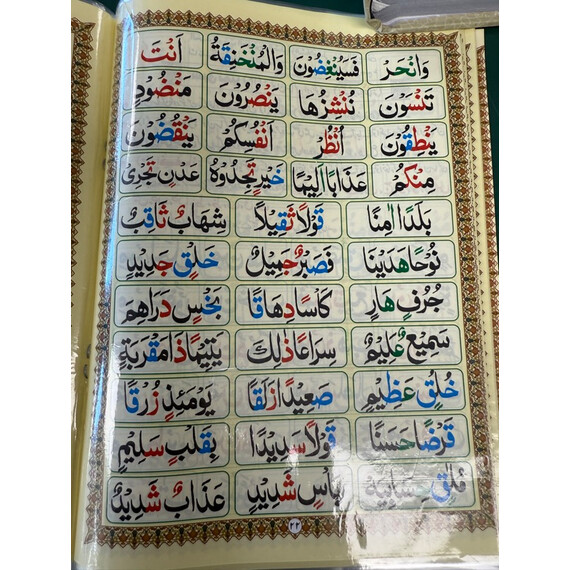 وَانْحَرْ فَسَيُنْغِضُوْنَ وَالْمُنْخَنِقَةُ اَنْتَ
تَنْسَوْنَ نُنْشِزُهَا يَنْصُرُوْنَ مَنْضُوْدٍ
يَنْطِقُوْنَ اُنْظُرْ اَنْفُسَكُمْ يَنْقُضُوْنَ
مِنْكُمْ عَذَابًا اَلِيْمًا خَيْرٍ تَجِدُوْهُ عَدْنٍ تَجْرِيْ
بَلَدًا اٰمِنًا قَوْلًا ثَقِيْلًا شِهَابٌ ثَاقِبٌ
نُوْحًا هَدَيْنَا فَصَبْرٌ جَمِيْلٌ خَلْقٍ جَدِيْدٍ
جُرُفٍ هَارٍ كَاْسًا دِهَاقًا بَخْسٍ دَرَاهِمَ
سَمِيْعٌ عَلِيْمٌ سِرَاعًا ذٰلِكَ يَتِيْمًا ذَا مَقْرَبَةٍ
خُلُقٍ عَظِيْمٍ صَعِيْدًا زَلَقًا يَوْمَئِذٍ زُرْقًا
قَرْضًا حَسَنًا قَوْلًا سَدِيْدًا بِقَلْبٍ سَلِيْمٍ
بَاْسٍ شَدِيْدٍ عَذَابٌ شَدِيْدٌ
٢٢